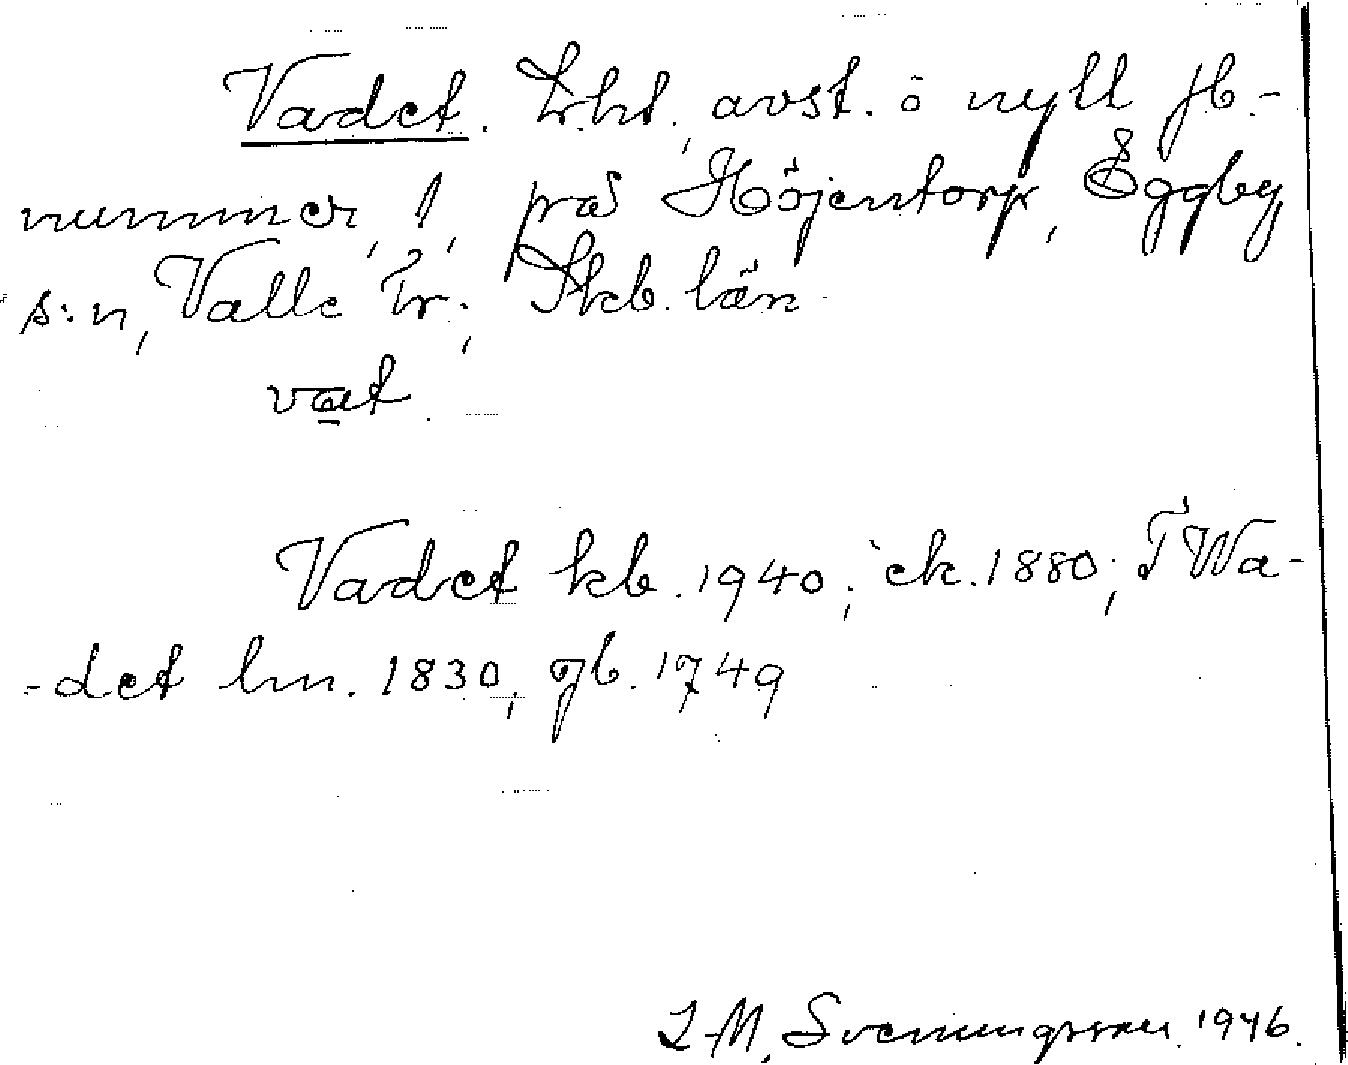 Vadet. Lht, avst. o nytt jb.-
nummer, 1, på Höjentorp, Eggby
s:n, Valle hr; Skb. län
vat
Vadet kb. 1940; ek. 1880; T Wa-
-det lm. 1830, gb. 1749
L-M. Svenungsson 1946.